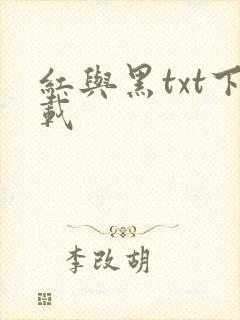 紅與黑txt下
載
李改胡